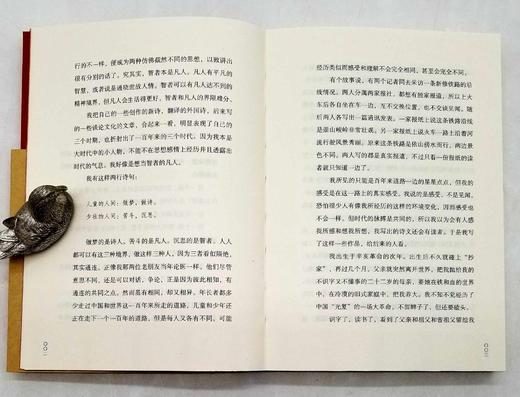 行的不一样，便成为两种仿佛截然不同的思想，以致讲出
很有分别的话了。究其实，智者本是凡人。凡人有平凡的
智慧，或者说是通晓世故人情。智者可以有凡人达不到的
精神境界，但凡人会生活得更好。智者和凡人的界限难分。
我把自己的一些创作的新诗，翻译的外国诗，后来写
的一些谈论文化的文章，合起来一看，明显表现了自己的
三个时期，也折射出了一百年来的三个时代，因为我本是
大时代中的小人物，不能不在思想感情上经历并且透露出
时代的气息。我好像是想当智者的凡人。
我有这样两行诗句：
儿童的人间：做梦，做诗。
少壮的人间：苦斗，沉思。
做梦的是诗人，苦斗的是凡人，沉思的是智者。人人
都可以有这样三种人间，做这样三种人，因为三者看似隔绝，
其实通连。正像我那两位老朋友当年论医一样。他们尽管
意思不同，还是可以对话，争论，正是因为彼此相知，有
通连的共同之点。然而是有相同，却又相异。年长者都多
少走过中国和世界这一百年来所走的道路，儿童和少年还
正在走下一个一百年的道路，但是每人又各有不同，可能
经历类似而感受和理解不会完全相同，甚至会完全不同。
有个故事说，有两个记者同去采访一条新修铁路的沿
线情况。两人分属两家报社，都想有独家报道，所以上火
车后各自坐在车一边，互不交换位置，也不交谈见闻，随
后两人各写出一篇通讯发表。一家报纸上说这条铁路沿线
是崇山峻岭非常壮观。另一家报纸上说火车一路上沿着河
流行驶风景秀丽。原来这条铁路是依山傍水而行，两边景
色不同。两人写的都是真实报道，不过只看一份报纸的读
者就只知道一边了。
我所见的只能是百年来道路一边的星星点点，但我的
感受是在这一路上的真实感受。我说的是感受，不是观察。
恐怕很少人有像我所经历的这样的环境变化，因而感受也
不会一样。但时代的脉搏是共同的，所以我以为会有人感
我所感和想我所想，我写出的诗文还会有读者。于是我写
了这样一些作品，给后来的人看。
我出生于辛亥革命的次年。出生后不久就碰上“抄
家”，再过几个月，父亲就突然离开世界，把我抛给我的
不识字又不懂事的二十二岁的母亲，要她在铁和血的世界
中，在冷漠的旧式家庭中，把我养大。我不知不觉经历了
中国“光复”的一场大革命，不留辫子了，但还要磕头。
识字了，读书了，看到了父亲和祖父和曾祖父留给我